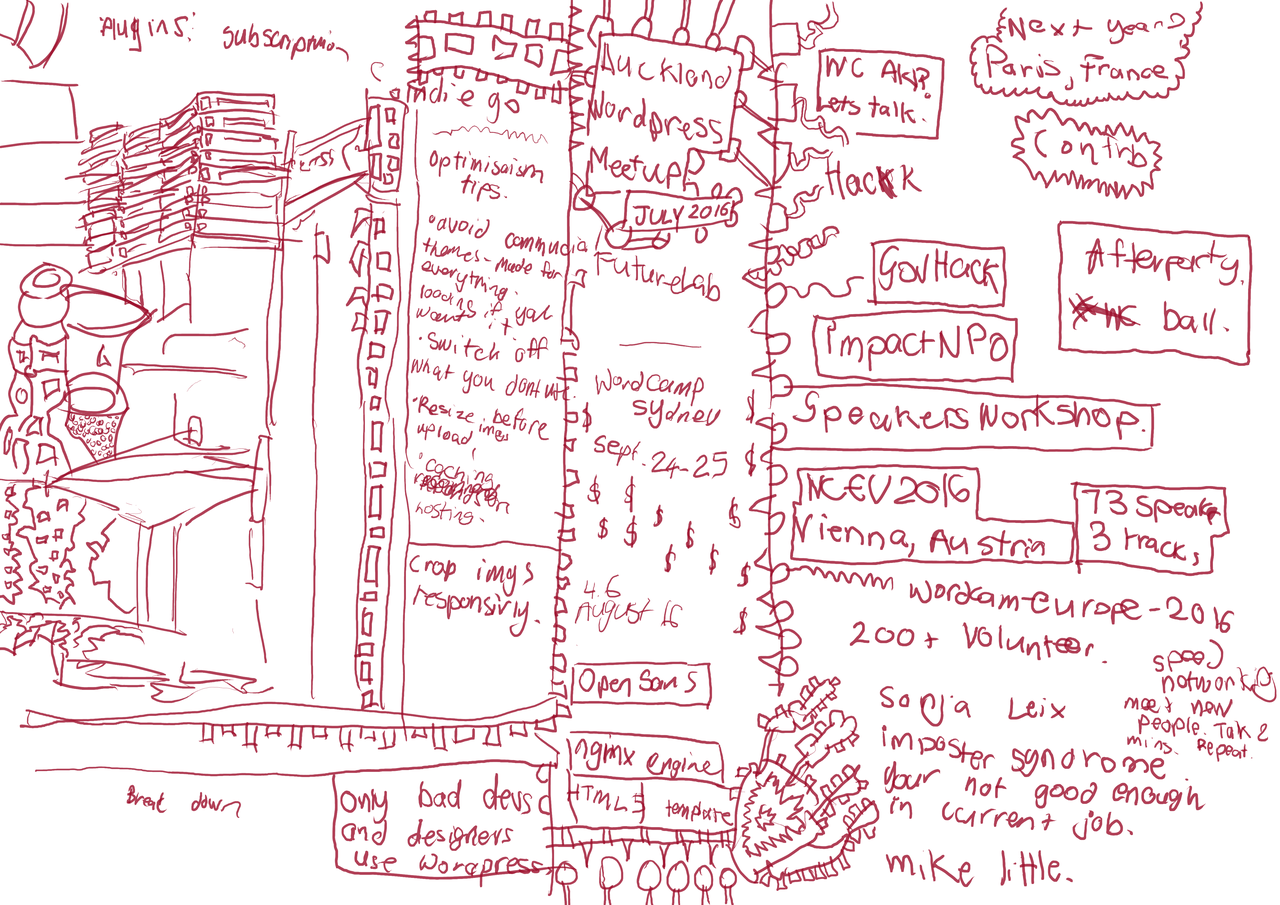 Plugins: subscription
Indie go
optimisaism
tips.
• avoid
themes - made for
everything.
loading if you
want it
• Switch off
what you dont use.
• Resize imgs before
upload
• caching
hosting.
Crop imgs
responsivly.
Break down
only bad devs
and designers
use wordpress
Auckland
Wordpress
Meetup
JULY 2016
FutureLab
WordCamp
Sydney
$ $
Sept. 24-25 $
$ $ $ $
$ $ $
$ $ $
4.6
August 16
$
Open Sans
nginx engine
HTML5 template
WC Akl?
Lets talk.
Hack
Next year
Paris, France
Contrb
GovHack
Afterparty.
WC ball.
impactNPO
Speakers Workshop.
WCEU 2016
Vienna, Austria
73 speak
3 tracks
wordcam-europe-2016
200+ volunteer.
speed
networking
meet new
people. Talk 2
mins. Repeat.
Sonja Leix
imposter syndrome
your not good enough
in current job.
mike little.